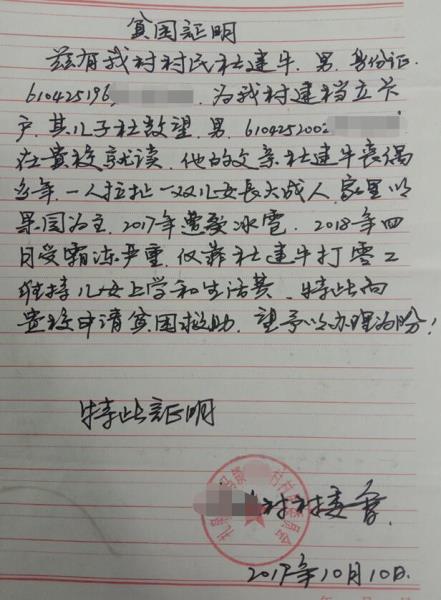 贫困証明
兹有我村村民杜建牛.男.身份证.
610425196 .为我村建档立卡
户.其儿子杜敖望.男.610425200
在贵校就读.他的父亲杜建牛丧偶
多年.一人拉扯一双儿女長大成人.家里以
果园为主.2017年遭受冰雹.2018年四
月受霜冻严重.仅靠杜建牛打零工
维持儿女上学和生活费.特此向
贵校申请贫困救助.望予以办理为盼!
特此証明
村村委会.
2017年10月10日.